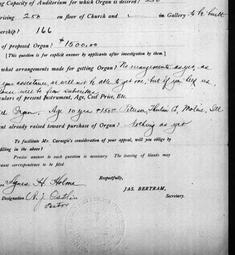 ng Capacity of Auditorium for which Organ is desired? 250
rising 250 on floor of Church and in Gallery to be built
bership? 166
of proposed Organ? $1500.00
[This question is for explicit answer by applicants after investigation by them.]
hat arrangements made for getting Organ? No arrangements as yet, as
we will not be able to get one, but if you help us,
will be
ulars of present Instrument, Age, Cost Price, Etc.
Organ, Age 10 yrs Moline, Ill
ent already raised toward purchase of Organ? Nothing as yet
To facilitate Mr. Carnegie's consideration of your appeal, will you oblige by
filling in the above?
Precise answer to each question is necessary. The leaving of blanks may
ant correspondence to be filed.
Respectfully,
Agnes H. Holme
JAS. BERTRAM,
Designation (R. J. Catlin
Secretary.
Pastor